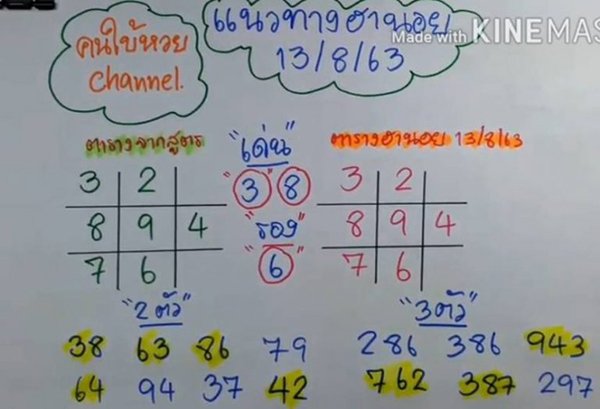 คนใบ้หวย
Channel.
แนวทางฮานอย
13/8/63
Made with KINEMAS
ตารางจากสูตร
"เด่น"
ตารางฮานอย 13/8/63
3 2
8 9 4
7 6
"3" "8"
"รอง"
"6"
3 2
8 9 4
7 6
"2 ตัว"
"3 ตัว"
38 63 86 79
64 94 37 42
286 386 943
762 387 297